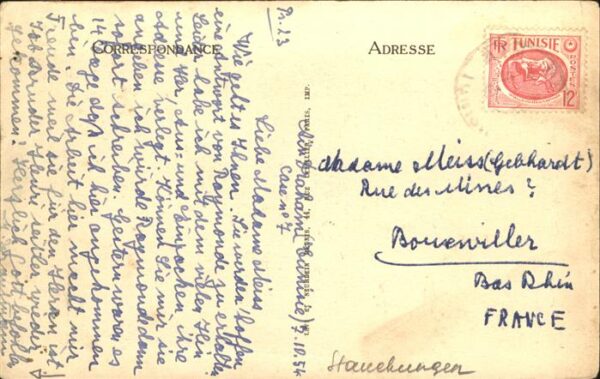 CORRESPONDANCE
ADRESSE
RF TUNISIE
12F
Pr. 23
Case no 7
7.10.54
Liebe Madame Meiss
Wie geht es Ihnen. Sie werden hoffen
eine Antwort von Raymonde zu erhalten
Leider habe ich mit dem vielen Hin
und Her, Aus- und Einpacken, ihre
Adresse verlegt. Können Sie mir sie
angeben ich würde Raymonde dann
sofort schreiben. Gestern waren es
14 Tage dass ich hier angekommen
bin. Die Arbeit hier macht mir
Freude weil sie für den Herrn ist.
Job Bruder Henri wieder
gekommen? Herzlich Gott befohlen
Madame Meiss (Gebhardt)
Rue des Mines ?
Bouxwiller
Bas Rhin
FRANCE
Stauchungen